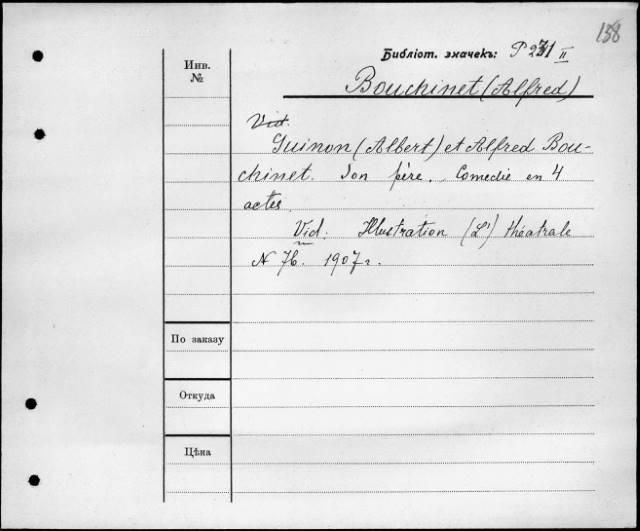 138
Библіот. значекъ: P 231 II
Инв.
№
Bouchinet (Alfred)
Vid
Guinon (Albert) et Alfred Bou-
chinet. Son père. Comedie en 4
actes.
Vid. Illustration (L') théatrale
N 76. 1907 г.
По заказу
Откуда
Цѣна